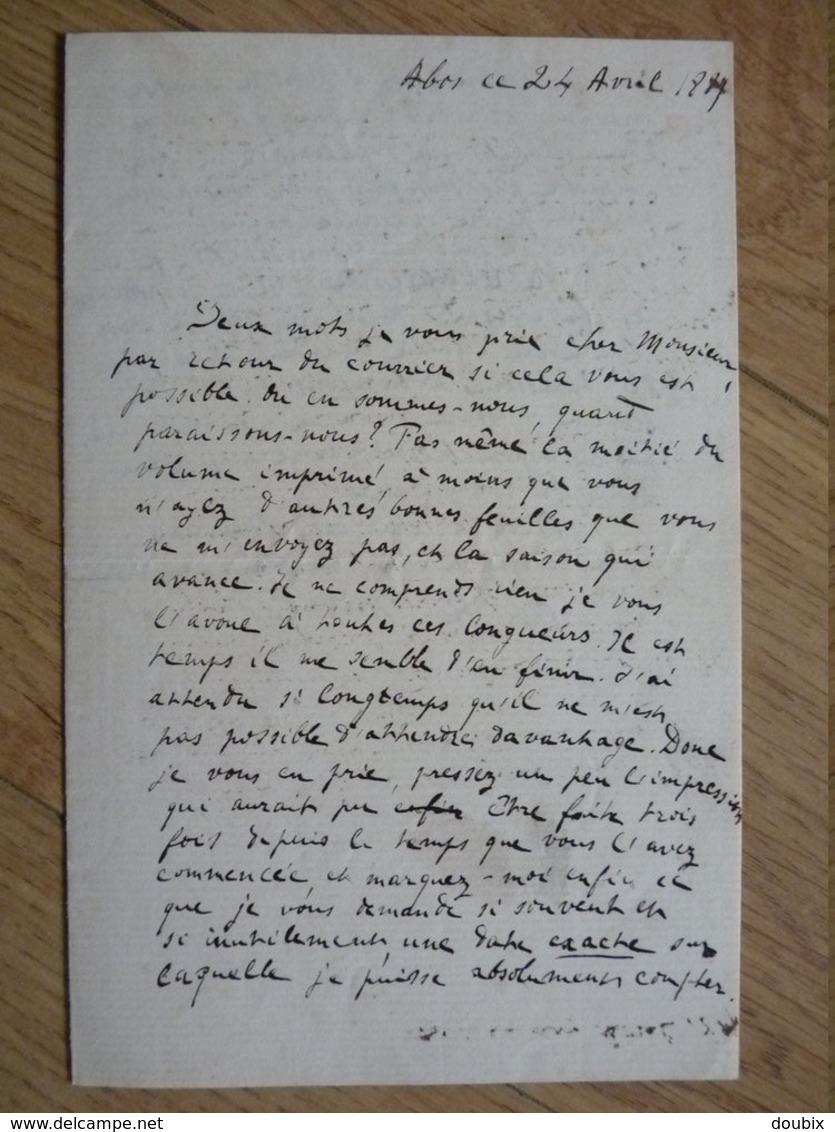 Abos ce 24 Avril
Deux mots je vous prie cher Monsieur,
par retour du courrier si cela vous est
possible. Où en sommes-nous, quand
paraissons-nous? Pas même la moitié du
volume imprimé, à moins que vous
n'ayez d'autres bonnes feuilles que vous
ne m'envoyez pas, et la saison qui
avance. Je ne comprends rien je vous
l'avoue à toutes ces longueurs. Il est
temps il me semble d'en finir. J'ai
attendu si longtemps qu'il ne m'est
pas possible d'attendre davantage. Donc
je vous en prie, pressez un peu l'impression
qui aurait pu enfin être faite trois
fois depuis le temps que vous l'avez
commencée, et marquez-moi enfin ce
que je vous demande si souvent et
si inutilement, une date exacte sur
laquelle je puisse absolument compter.
delcampe.net
doubix